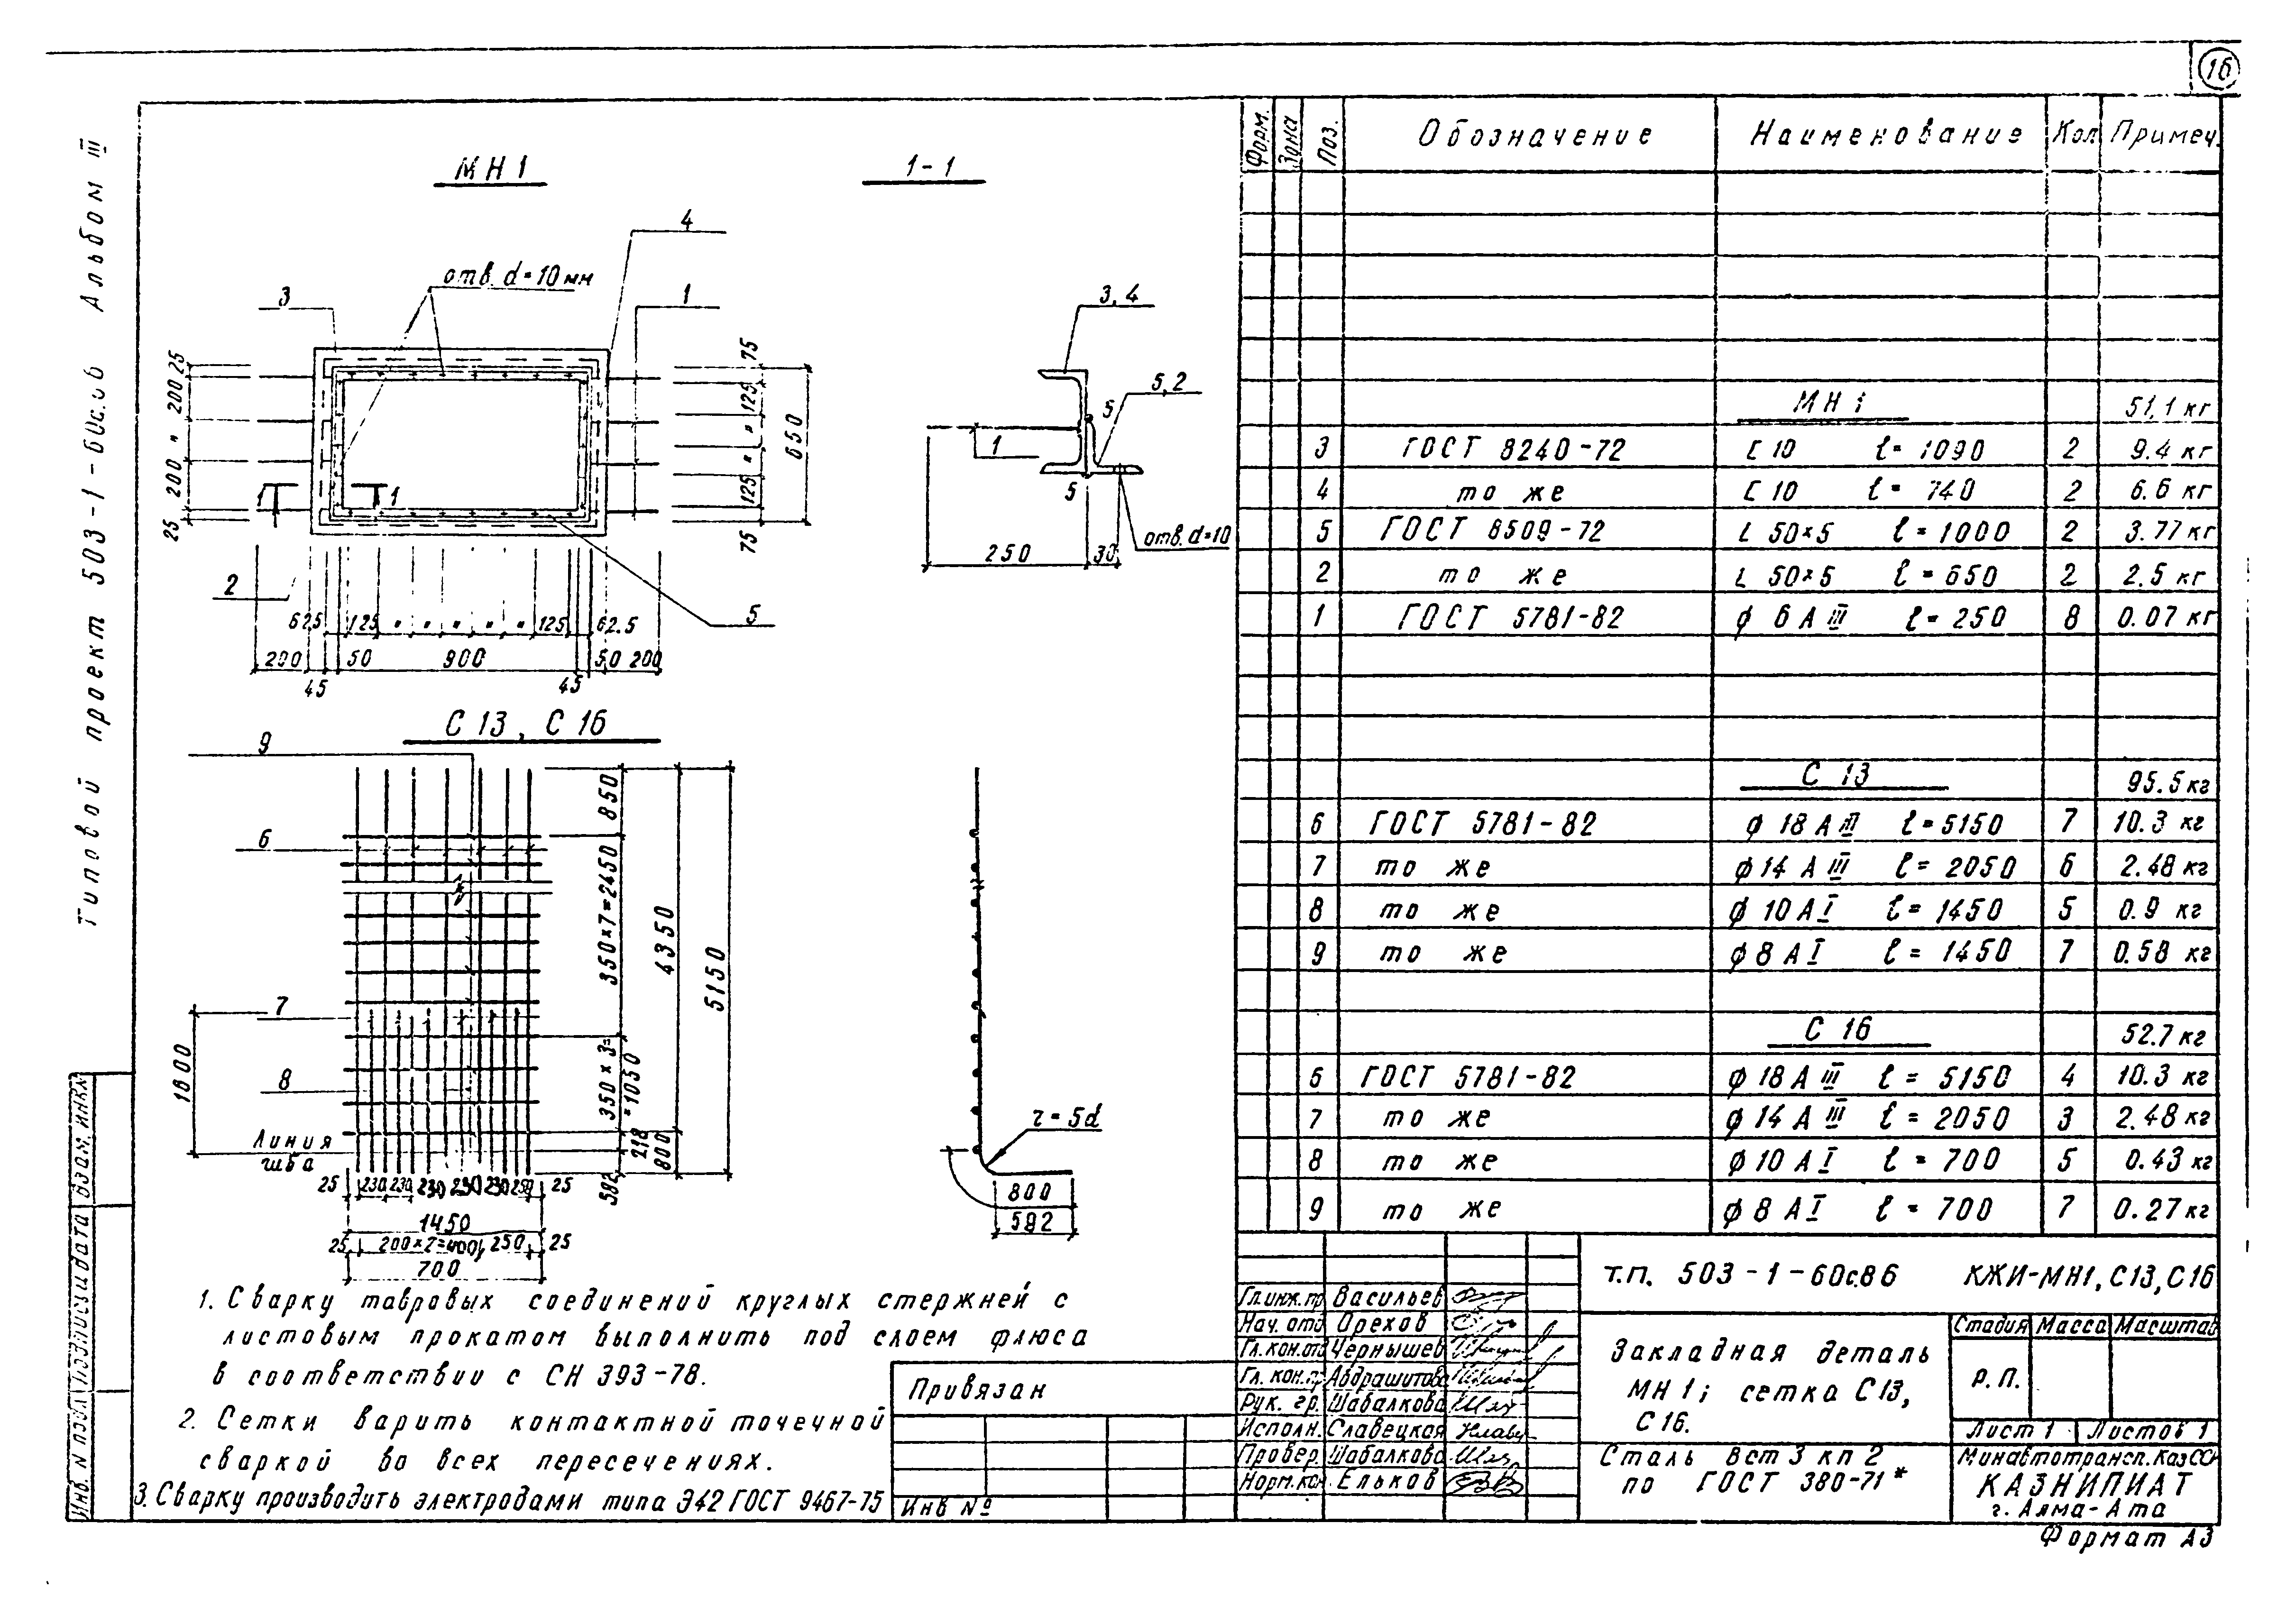 16
Типовой проект 503-1-60с.86 Альбом III
МН1
1-1
4
отв. d=10мм
3
1
25
200
"
200
25
75
125
"
"
125
75
650
1
1
2
5
62.5 125 " " " " " 125 62.5
200 50 900 50 200
45 45
3,4
5,2
5
1
5
отв. d=10
250 30
С13, С16
9
6
7
8
850
350×7=2450
350×3=
=1050
218
582
4350
800
5150
1600
Линия
гиба
25 230 230 230 230 230 250 25
1450
25 200×2=400 250 25
700
r=5d
800
582
1. Сварку тавровых соединений круглых стержней с
листовым прокатом выполнить под слоем флюса
в соответствии с СН 393-78.
2. Сетки варить контактной точечной
сваркой во всех пересечениях.
3. Сварку производить электродами типа Э42 ГОСТ 9467-75
Форм. Зона Поз. Обозначение Наименование Кол. Примеч.
МН1 51,1 кг
3 ГОСТ 8240-72 [ 10 ℓ=1090 2 9.4 кг
4 то же [ 10 ℓ= 740 2 6.6 кг
5 ГОСТ 8509-72 L 50×5 ℓ=1000 2 3.77 кг
2 то же L 50×5 ℓ=650 2 2.5 кг
1 ГОСТ 5781-82 ϕ 6 А III ℓ=250 8 0.07 кг
С 13 95.5 кг
6 ГОСТ 5781-82 ϕ 18 А III ℓ=5150 7 10.3 кг
7 то же ϕ 14 А III ℓ= 2050 6 2.48 кг
8 то же ϕ 10 А I ℓ= 1450 5 0.9 кг
9 то же ϕ 8 А I ℓ= 1450 7 0.58 кг
С 16 52.7 кг
6 ГОСТ 5781-82 ϕ 18 А III ℓ= 5150 4 10.3 кг
7 то же ϕ 14 А III ℓ= 2050 3 2.48 кг
8 то же ϕ 10 А I ℓ= 700 5 0.43 кг
9 то же ϕ 8 А I ℓ= 700 7 0.27 кг
Т.П. 503-1-60с.86 КЖИ-МН1, С13, С16
Гл.инж.пр Васильев
Нач. отд Орехов
Гл.кон.отд Чернышев
Гл. кон.п Абдрашитова
Рук. гр. Шабалкова
Исполн. Славецкая
Провер. Шабалкова
Норм.кон. Ельков
Закладная деталь
МН1; сетка С13,
С16.
Стадия Масса Масштаб
Р.П.
Лист 1 Листов 1
Сталь Вст 3 кп 2
по ГОСТ 380-71*
Минавтотрансп. КазССР
КАЗНИПИАТ
г. Алма-Ата
Формат А3
Привязан
Инв №
Инв. № подл. Подпись и дата Взам. инв.